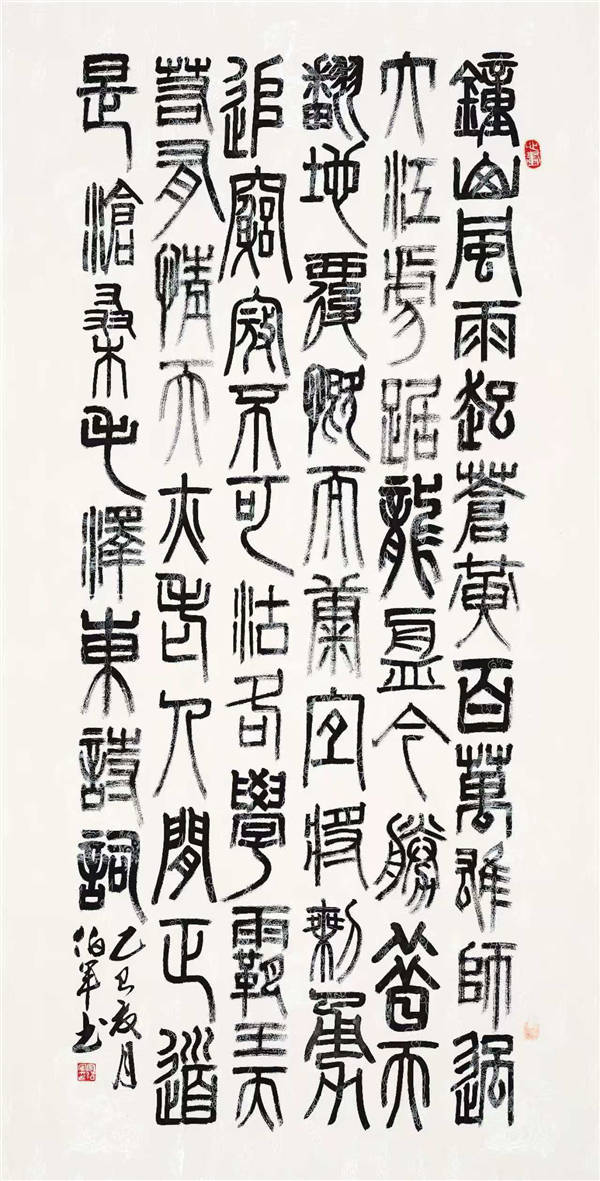 鐘山風雨起蒼黃百萬雄師過
大江虎踞龍盤今勝昔天
翻地覆慨而慷宜將剩勇
追窮寇不可沽名學霸王天
若有情天亦老人間正道
是滄桑毛澤東詩詞
乙丑夏月
伯军书